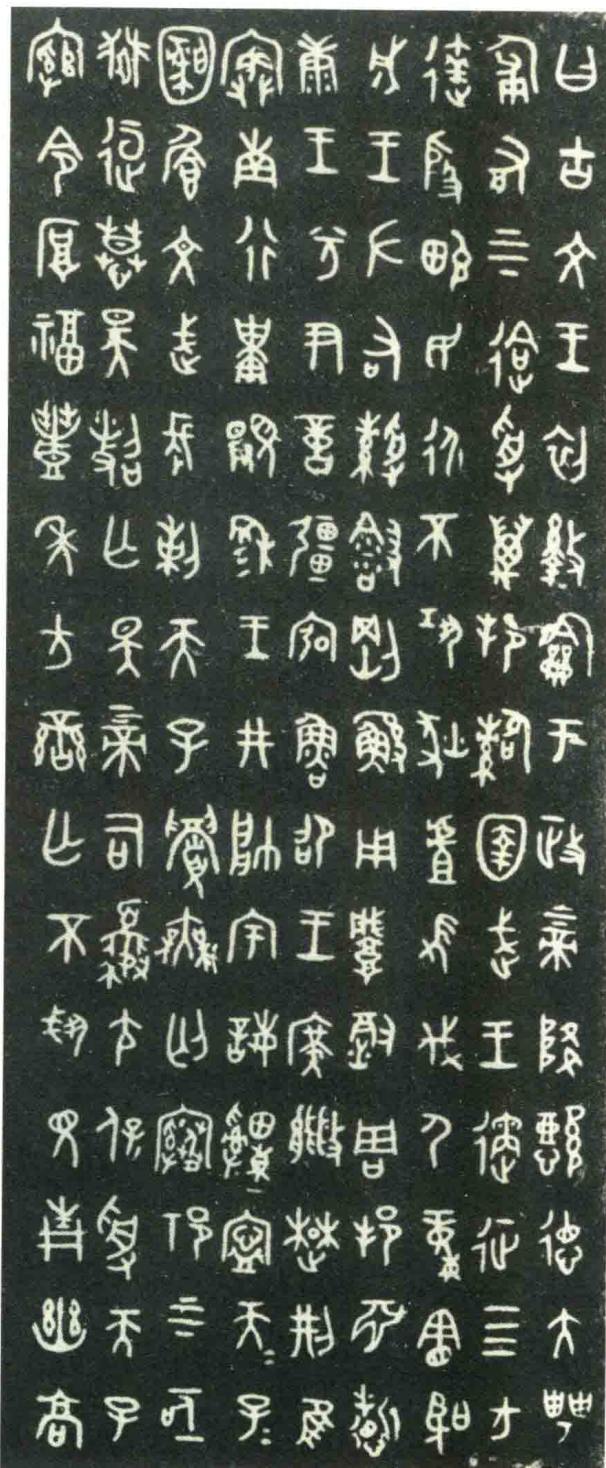 曰古文王初盭龢于政上帝降懿德大甹
匍有上下迨受萬邦䚄圉武王遹征四方
達殷畯民永不巩狄虘髟伐尸童憲聖
成王左右綬䋣剛鯀用肇徹周邦淵哲
康王兮尹億疆宏魯昭王廣能楚荊隹
寏南行祗顯穆王井帥宇誨申寧天子
圝文武長剌天子眉無匄祁上下亟
獄逗慕昊照亡斁上帝司夒尢保受天子
綰令厚福豐年方蠻亡不䚄見青幽高